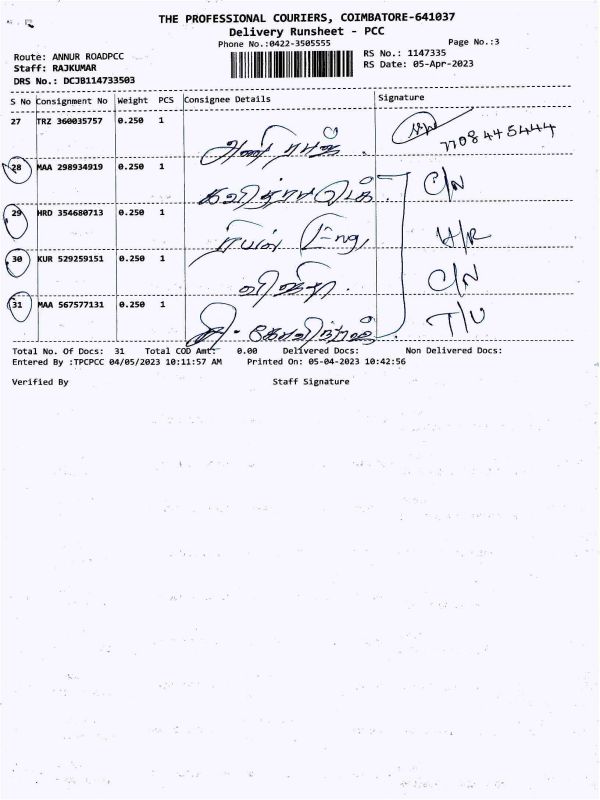 THE PROFESSIONAL COURIERS, COIMBATORE-641037
Delivery Runsheet - PCC
Phone No.:0422-3505555
Page No.:3
Route: ANNUR ROADPCC
RS No.: 1147335
Staff: RAJKUMAR
RS Date: 05-Apr-2023
DRS No.: DCJB114733503
S No Consignment No Weight PCS Consignee Details Signature
27 TRZ 360035757 0.250 1 7708445444
28 MAA 298934919 0.250 1 C/N
29 HRD 354680713 0.250 1 Eng, H/R
30 KUR 529259151 0.250 1 C/N
31 MAA 567577131 0.250 1 T/U
Total No. Of Docs: 31 Total COD Amt: 0.00 Delivered Docs: Non Delivered Docs:
Entered By :TPCPCC 04/05/2023 10:11:57 AM Printed On: 05-04-2023 10:42:56
Verified By Staff Signature